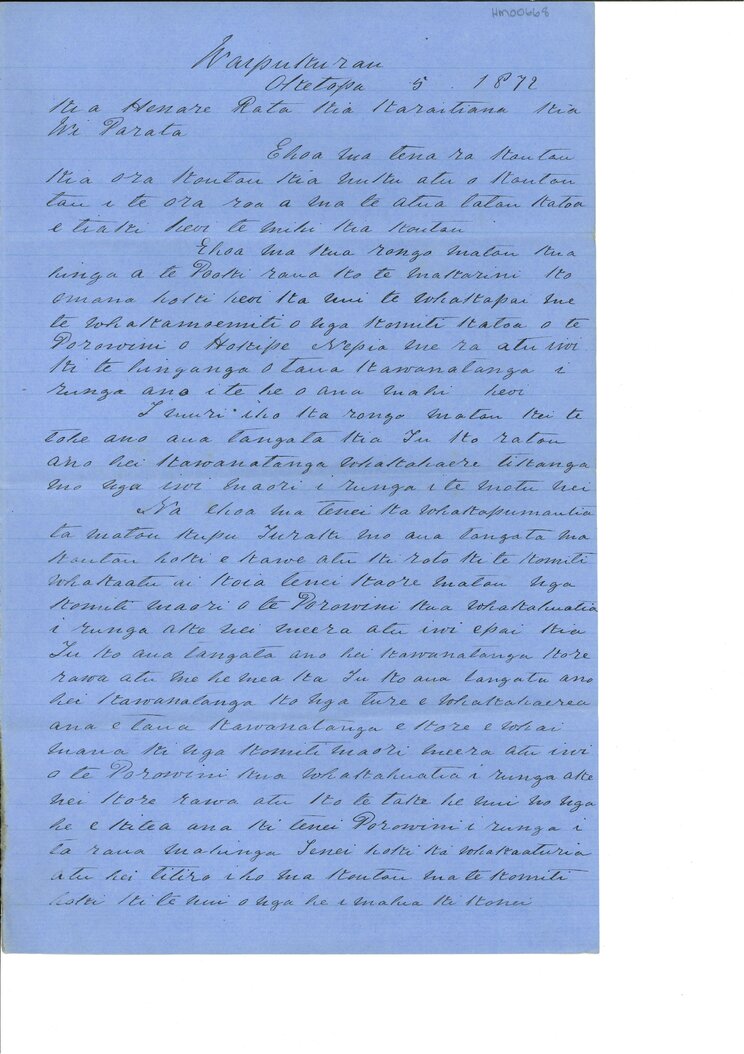 HM00668
Waipukurau
Oketopa 5. 1872
Kia Henare Rata Kia Karaitiana Kia
Wi Parata
Ehoa ma tena ra koutou
Kia ora koutou kia nuku atu o koutou
tau i te ora roa a ma te atua tatou katoa
e tiaki heoi te mihi kia koutou
Ehoa ma kua rongo matou kua
hinga a te Pooki raua ko te makarini ko
omana hoki heoi ka nui te whakapai me
te whakamoemiti o nga komiti katoa o te
Porowini o Hokipe Nepia me ra atu iwi
ki te hinganga o taua Kawanatanga i
runga ano i te he o ana mahi heoi
I muri iho ka rongo matou kei te
tohe ano aua tangata kia Tu ko ratou
ano hei Kawanatanga whakahaere tikanga
mo nga iwi maori i runga i te motu nei
Na ehoa ma tenei ka whakapumautia
ta matou kupu Turaki mo aua tangata ma
koutou hoki e kawe atu ki roto ki te komiti
whakaatu ai koia tenei kaore matou nga
komiti maori o te Porowini kua whakahuatia
i runga ake nei meera atu iwi epai kia
Tu ko aua tangata ano hei Kawanatanga kore
rawa atu me he mea ka Tu ko aua tangata ano
hei Kawanatanga ko nga ture e whakahaerea
ana e taua Kawanatanga e kore e whai
mana ki nga komiti maori meera atu iwi
o te Porowini kua whakahuatia i runga ake
nei kore rawa atu ko te take he nui no nga
he e kitea ana ki tenei Porowini i runga i
ta raua mahinga Tenei hoki ka whakaaturia
atu hei titiro iho ma koutou ma te komiti
hoki ki te nui o nga he i mahia ki konei